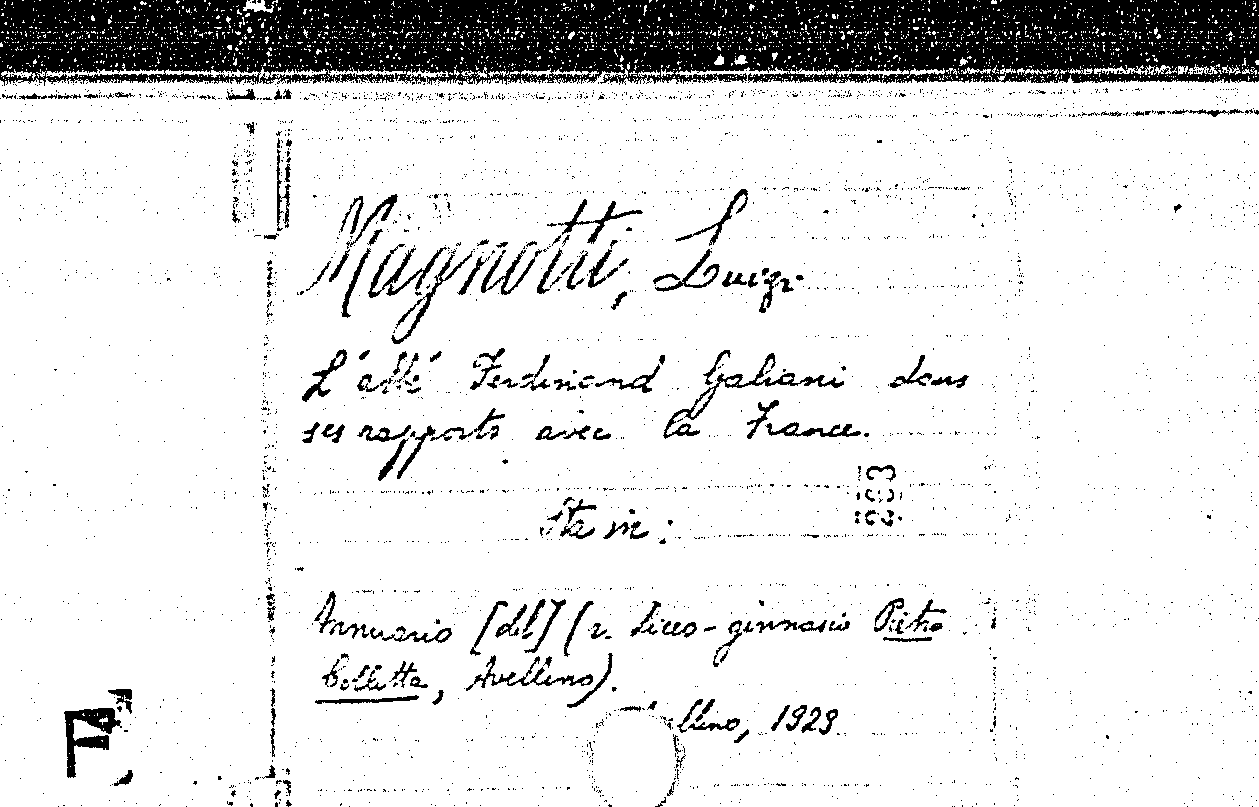 Magnotti, Luigi
L'abbé Ferdinand Galiani dans
ses rapports avec la France.
Sta in:
Annuario [del] (r. Liceo-ginnasio Pietro
Colletta, Avellino).
llino, 1929
F